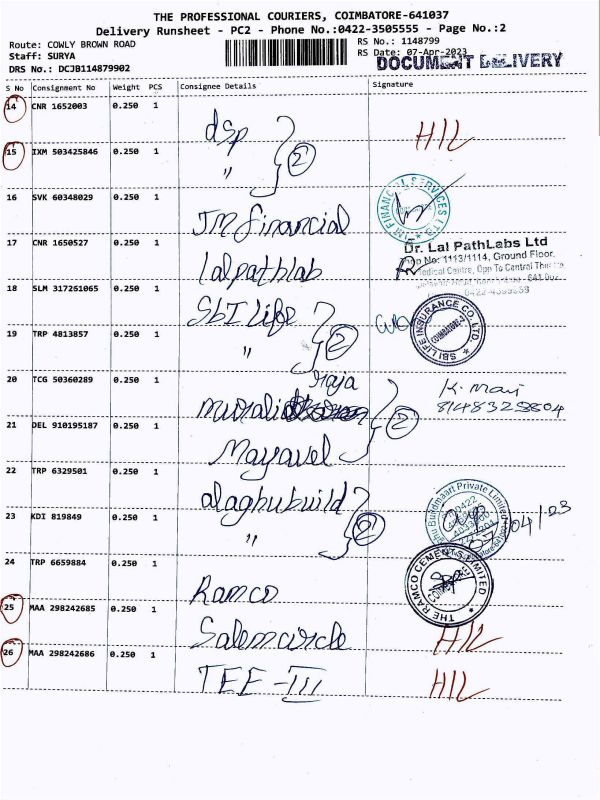 THE PROFESSIONAL COURIERS, COIMBATORE-641037
Delivery Runsheet - PC2 - Phone No.:0422-3505555 - Page No.:2
Route: COWLY BROWN ROAD
Staff: SURYA
DRS No.: DCJB114879902
RS No.: 1148799
RS Date: 07-Apr-2023
DOCUMENT DELIVERY
S No Consignment No Weight PCS Consignee Details Signature
14 CNR 1652003 0.250 1
dsp HIL
15 IXM 503425846 0.250 1
" 2
16 SVK 60348029 0.250 1
JM financial
JM FINANCIAL SERVICES LTD
17 CNR 1650527 0.250 1
lalpathlab
Dr. Lal PathLabs Ltd
No: 1113/1114, Ground Floor.
Medical Centre, Opp To Central
18 SLM 317261065 0.250 1
SbI Life
SBI LIFE INSURANCE CO. LTD.
19 TRP 4813857 0.250 1
" 2
20 TCG 50360289 0.250 1
raja
murali
K. Mani
8148325804
21 DEL 910195187 0.250 1
Mayavel 2
22 TRP 6329501 0.250 1
alaghubuild
Buildmaart Private Limited
23 KDI 819849 0.250 1
" 2
07/04/23
24 TRP 6659884 0.250 1
Ramco
THE RAMCO CEMENTS LIMITED
25 MAA 298242685 0.250 1
Salem circle HIL
26 MAA 298242686 0.250 1
TEE - III HIL